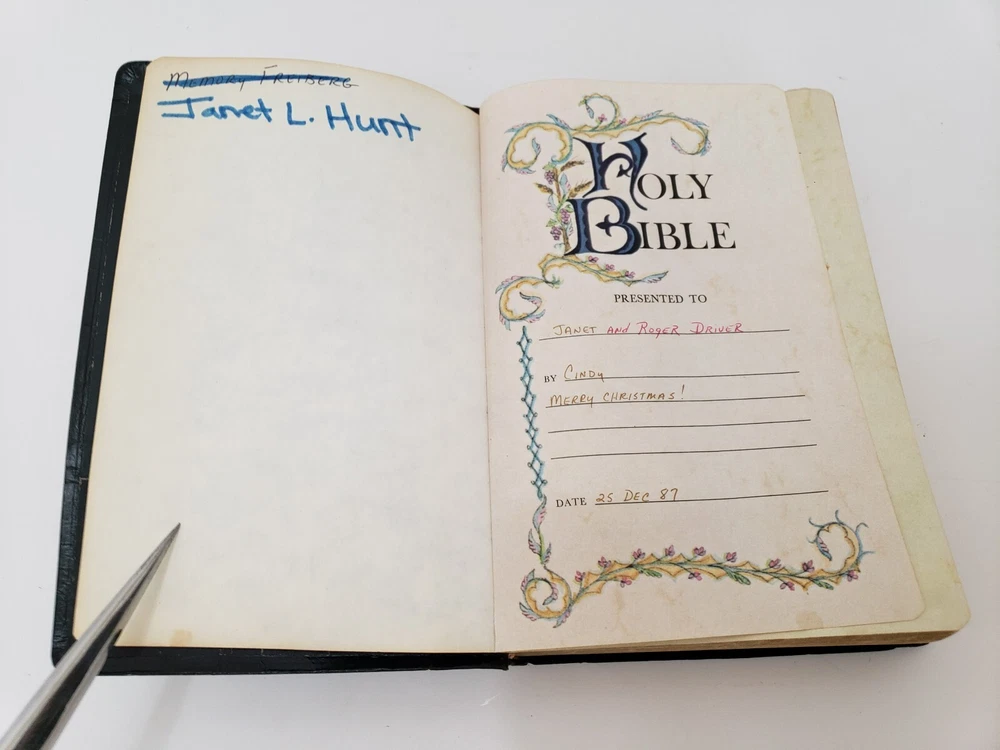 Memory Freiberg
Janet L. Hunt
HOLY
BIBLE
PRESENTED TO
JANET AND ROGER DRIVER
BY CINDY
MERRY CHRISTMAS!
DATE 25 DEC 87